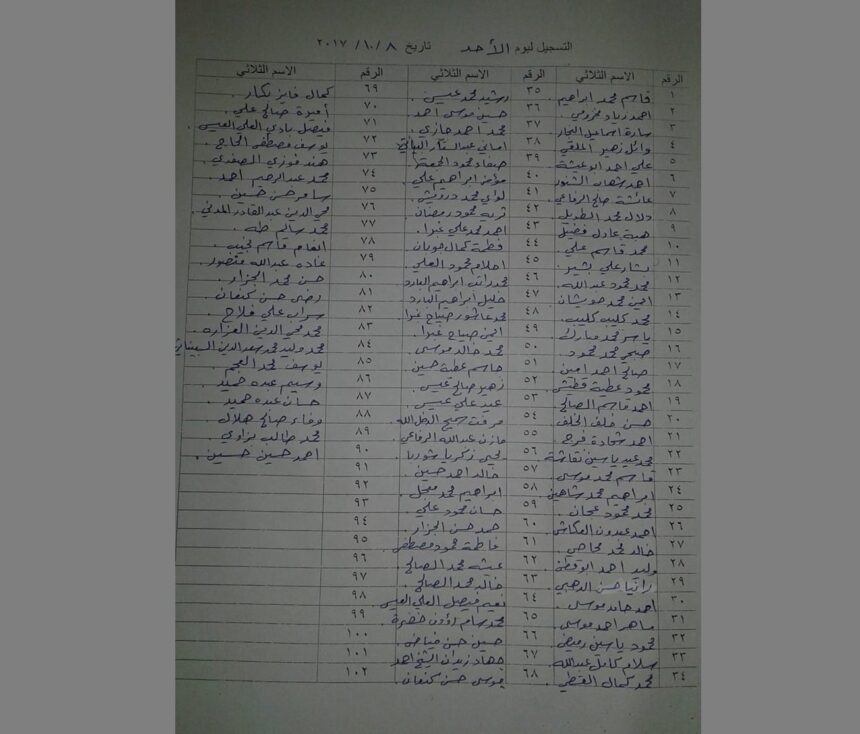 التسجيل ليوم الأحد تاريخ ٨ / ١٠ / ٢٠١٧
الرقم الاسم الثلاثي الرقم الاسم الثلاثي الرقم الاسم الثلاثي
١ قاسم محمد ابراهيم ٣٥ رشيد محمد عيسى ٦٩ كمال فايز
٢ احمد زياد مخزومي ٣٦ حسين موسى احمد ٧٠ أميرة صالح علي
٣ سارة اسماعيل النجار ٣٧ محمد احمد حجازي ٧١ فيصل بادي العلي العيسى
٤ وائل زهير الملقي ٣٨ اماني عبد الستار ٧٢ يوسف مصطفى الحاج
٥ علي احمد ابو عيشة ٣٩ صفاء محمود الجمعة ٧٣ هند فوزي الصفدي
٦ احمد شهاب ٤٠ مؤمن ابراهيم علي ٧٤ محمد عبد الرحيم احمد
٧ عائشة صالح الرفاعي ٤١ لؤي محمد درويش ٧٥ سامر حسن حسين
٨ دلال محمد الطويل ٤٢ محمود رمضان ٧٦ محي الدين عبد القادر المدني
٩ هبة عادل ٤٣ احمد محمد علي ٧٧ محمد سالم طه
١٠ محمد قاسم علي ٤٤ فطمة كمال حوران ٧٨ انعام قاسم نجيب
١١ بشار علي بشير ٤٥ احلام محمود العلي ٧٩ غاده عبدالله منصور
١٢ محمد محمود عبدالله ٤٦ محمد رأفت ابراهيم البارد ٨٠ حسن محمد الجزار
١٣ امين محمد حوشان ٤٧ خليل ابراهيم البارد ٨١ رضى حسن كنعان
١٤ محمد كليب كليب ٤٨ محمد عاشور صياح ٨٢ سراب علي فلاح
١٥ ياسر محمد مبارك ٤٩ ايمن صياح ٨٣ محمد محي الدين
١٦ صبحي محمد محمود ٥٠ محمد خالد موسى ٨٤ محمد وليد محمد سعد الدين
١٧ صالح احمد امين ٥١ جاسم عطية حسين ٨٥ يوسف محمد العجم
١٨ محمود عطية ٥٢ زهير صالح عيسى ٨٦ وسيم عبده حميد
١٩ احمد قاسم الصالح ٥٣ عيد علي عيسى ٨٧ حسان عبده حميد
٢٠ حسن خلف الخلف ٥٤ مرفت سميح ٨٨ وفاء صالح هلال
٢١ احمد شحادة فرج ٥٥ مازن عبدالله الرفاعي ٨٩ محمد طالب
٢٢ محمد عيد ياسين ٥٦ يحيى زكريا شوربا ٩٠ احمد حسين حسين
٢٣ قاسم محمد موسى ٥٧ خالد احمد حسين ٩١
٢٤ ابراهيم محمد شاهين ٥٨ ابراهيم محمد ٩٢
٢٥ محمد محمود ٥٩ حسان محمود علي ٩٣
٢٦ احمد عبدون العكاشي ٦٠ حمد حسن الجزار ٩٤
٢٧ خالد محمد ٦١ فاطمة حمود مصطفى ٩٥
٢٨ وليد احمد ٦٢ عيشه محمد الصالح ٩٦
٢٩ رانيا حسن الذهبي ٦٣ خالد محمد الصالح ٩٧
٣٠ احمد حامد موسى ٦٤ نعيم فيصل العلي العيسى ٩٨
٣١ ماهر احمد موسى ٦٥ محمد سامر رؤوف خضرة ٩٩
٣٢ محمود ياسين رميض ٦٦ حسين حسن فياض ١٠٠
٣٣ سلام كامل عبدالله ٦٧ جهاد زيدان الشيخ احمد ١٠١
٣٤ محمد كمال القبطي ٦٨ موسى حسن كنعان ١٠٢